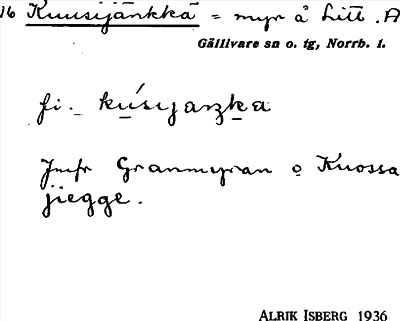 16 Kuusijänkkä = myr å Litt. A
Gällivare sn o. tg, Norrb. l.
fi. kúsijaŋka
Jmfr Granmyran o Kuossa
jiegge.
ALRIK ISBERG 1936